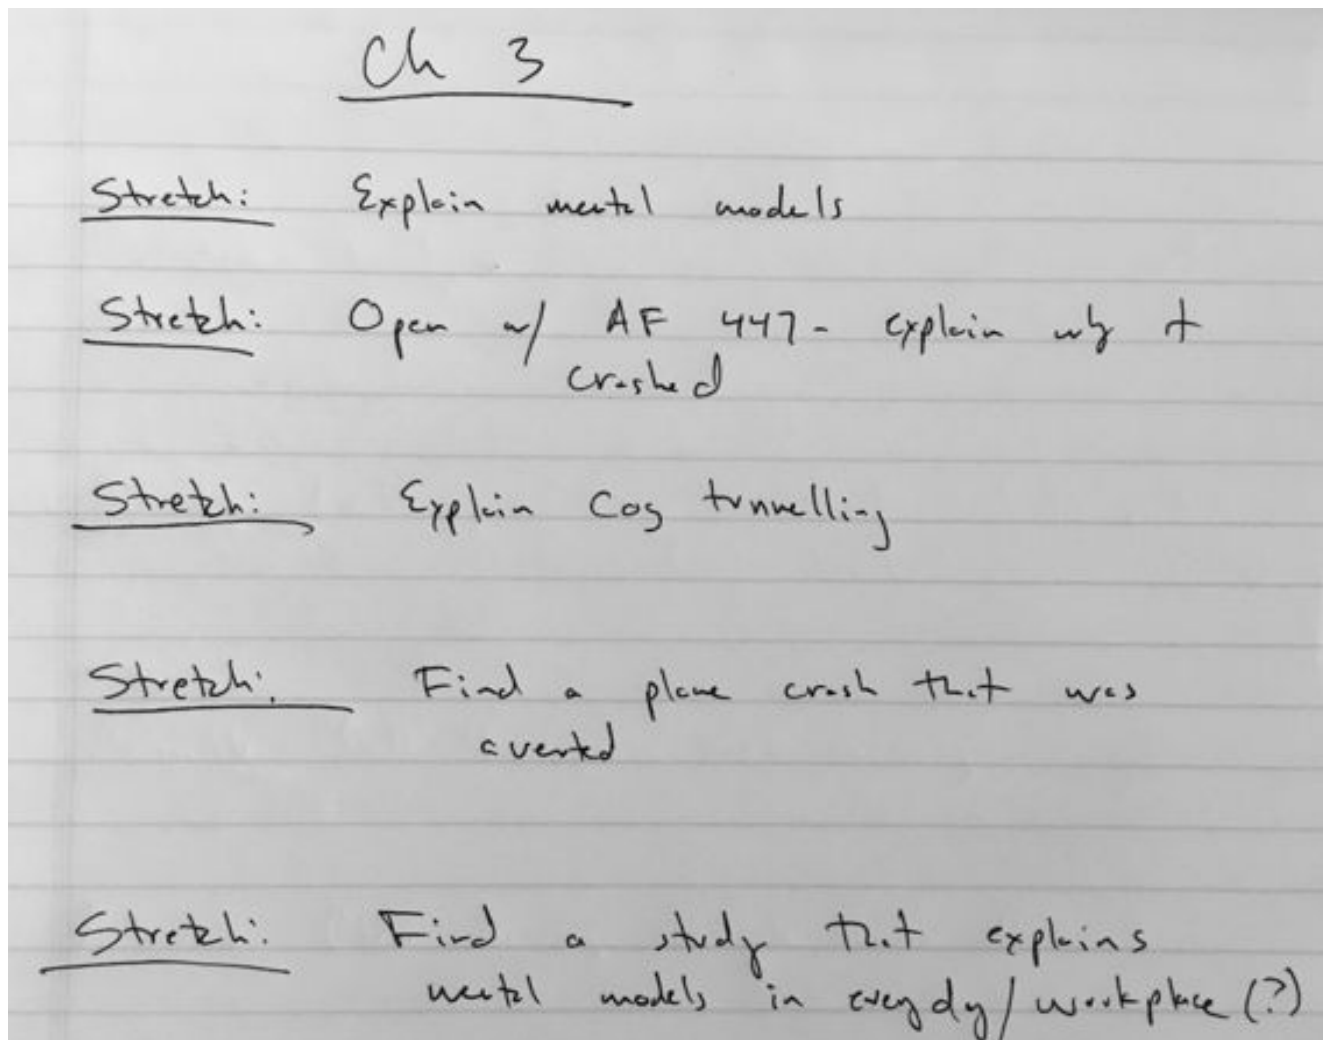 Ch 3
Stretch: Explain mental models
Stretch: Open w/ AF 447 - explain why it
crashed
Stretch: Explain Cog tunnelling
Stretch: Find a plane crash that was
averted
Stretch: Find a study that explains
mental models in everydy/workplace (?)